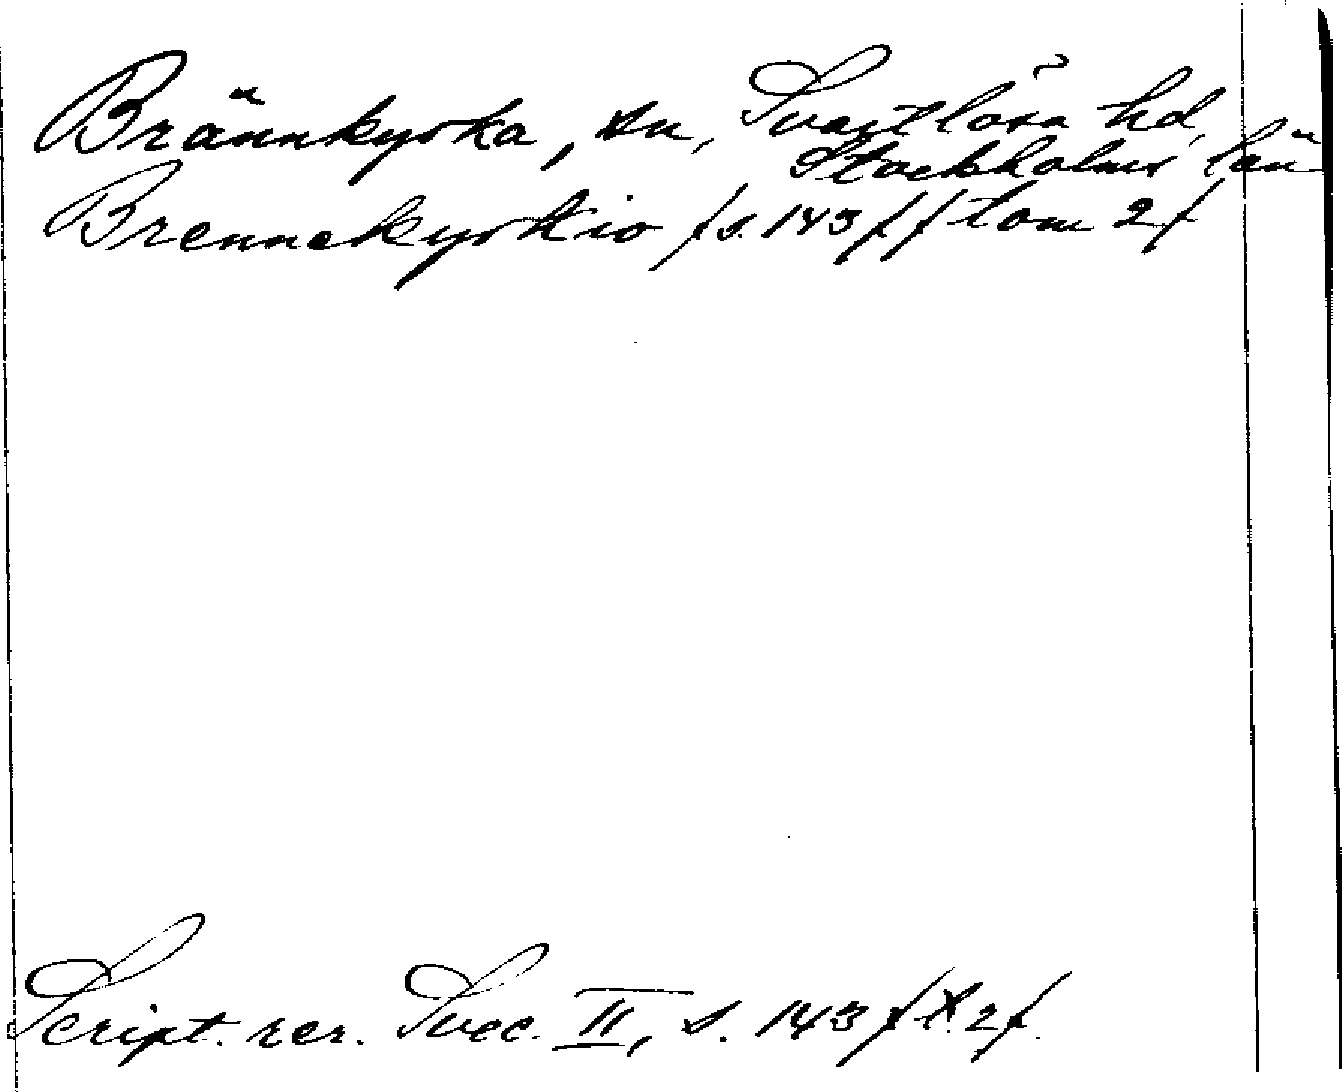 Brännkyrka, sn, Svartlösa hd,
Stockholms län
Brennekyrkio /s. 143/ /tom 2/
Script. rer. Svec. II, s. 143 /t. 2/.